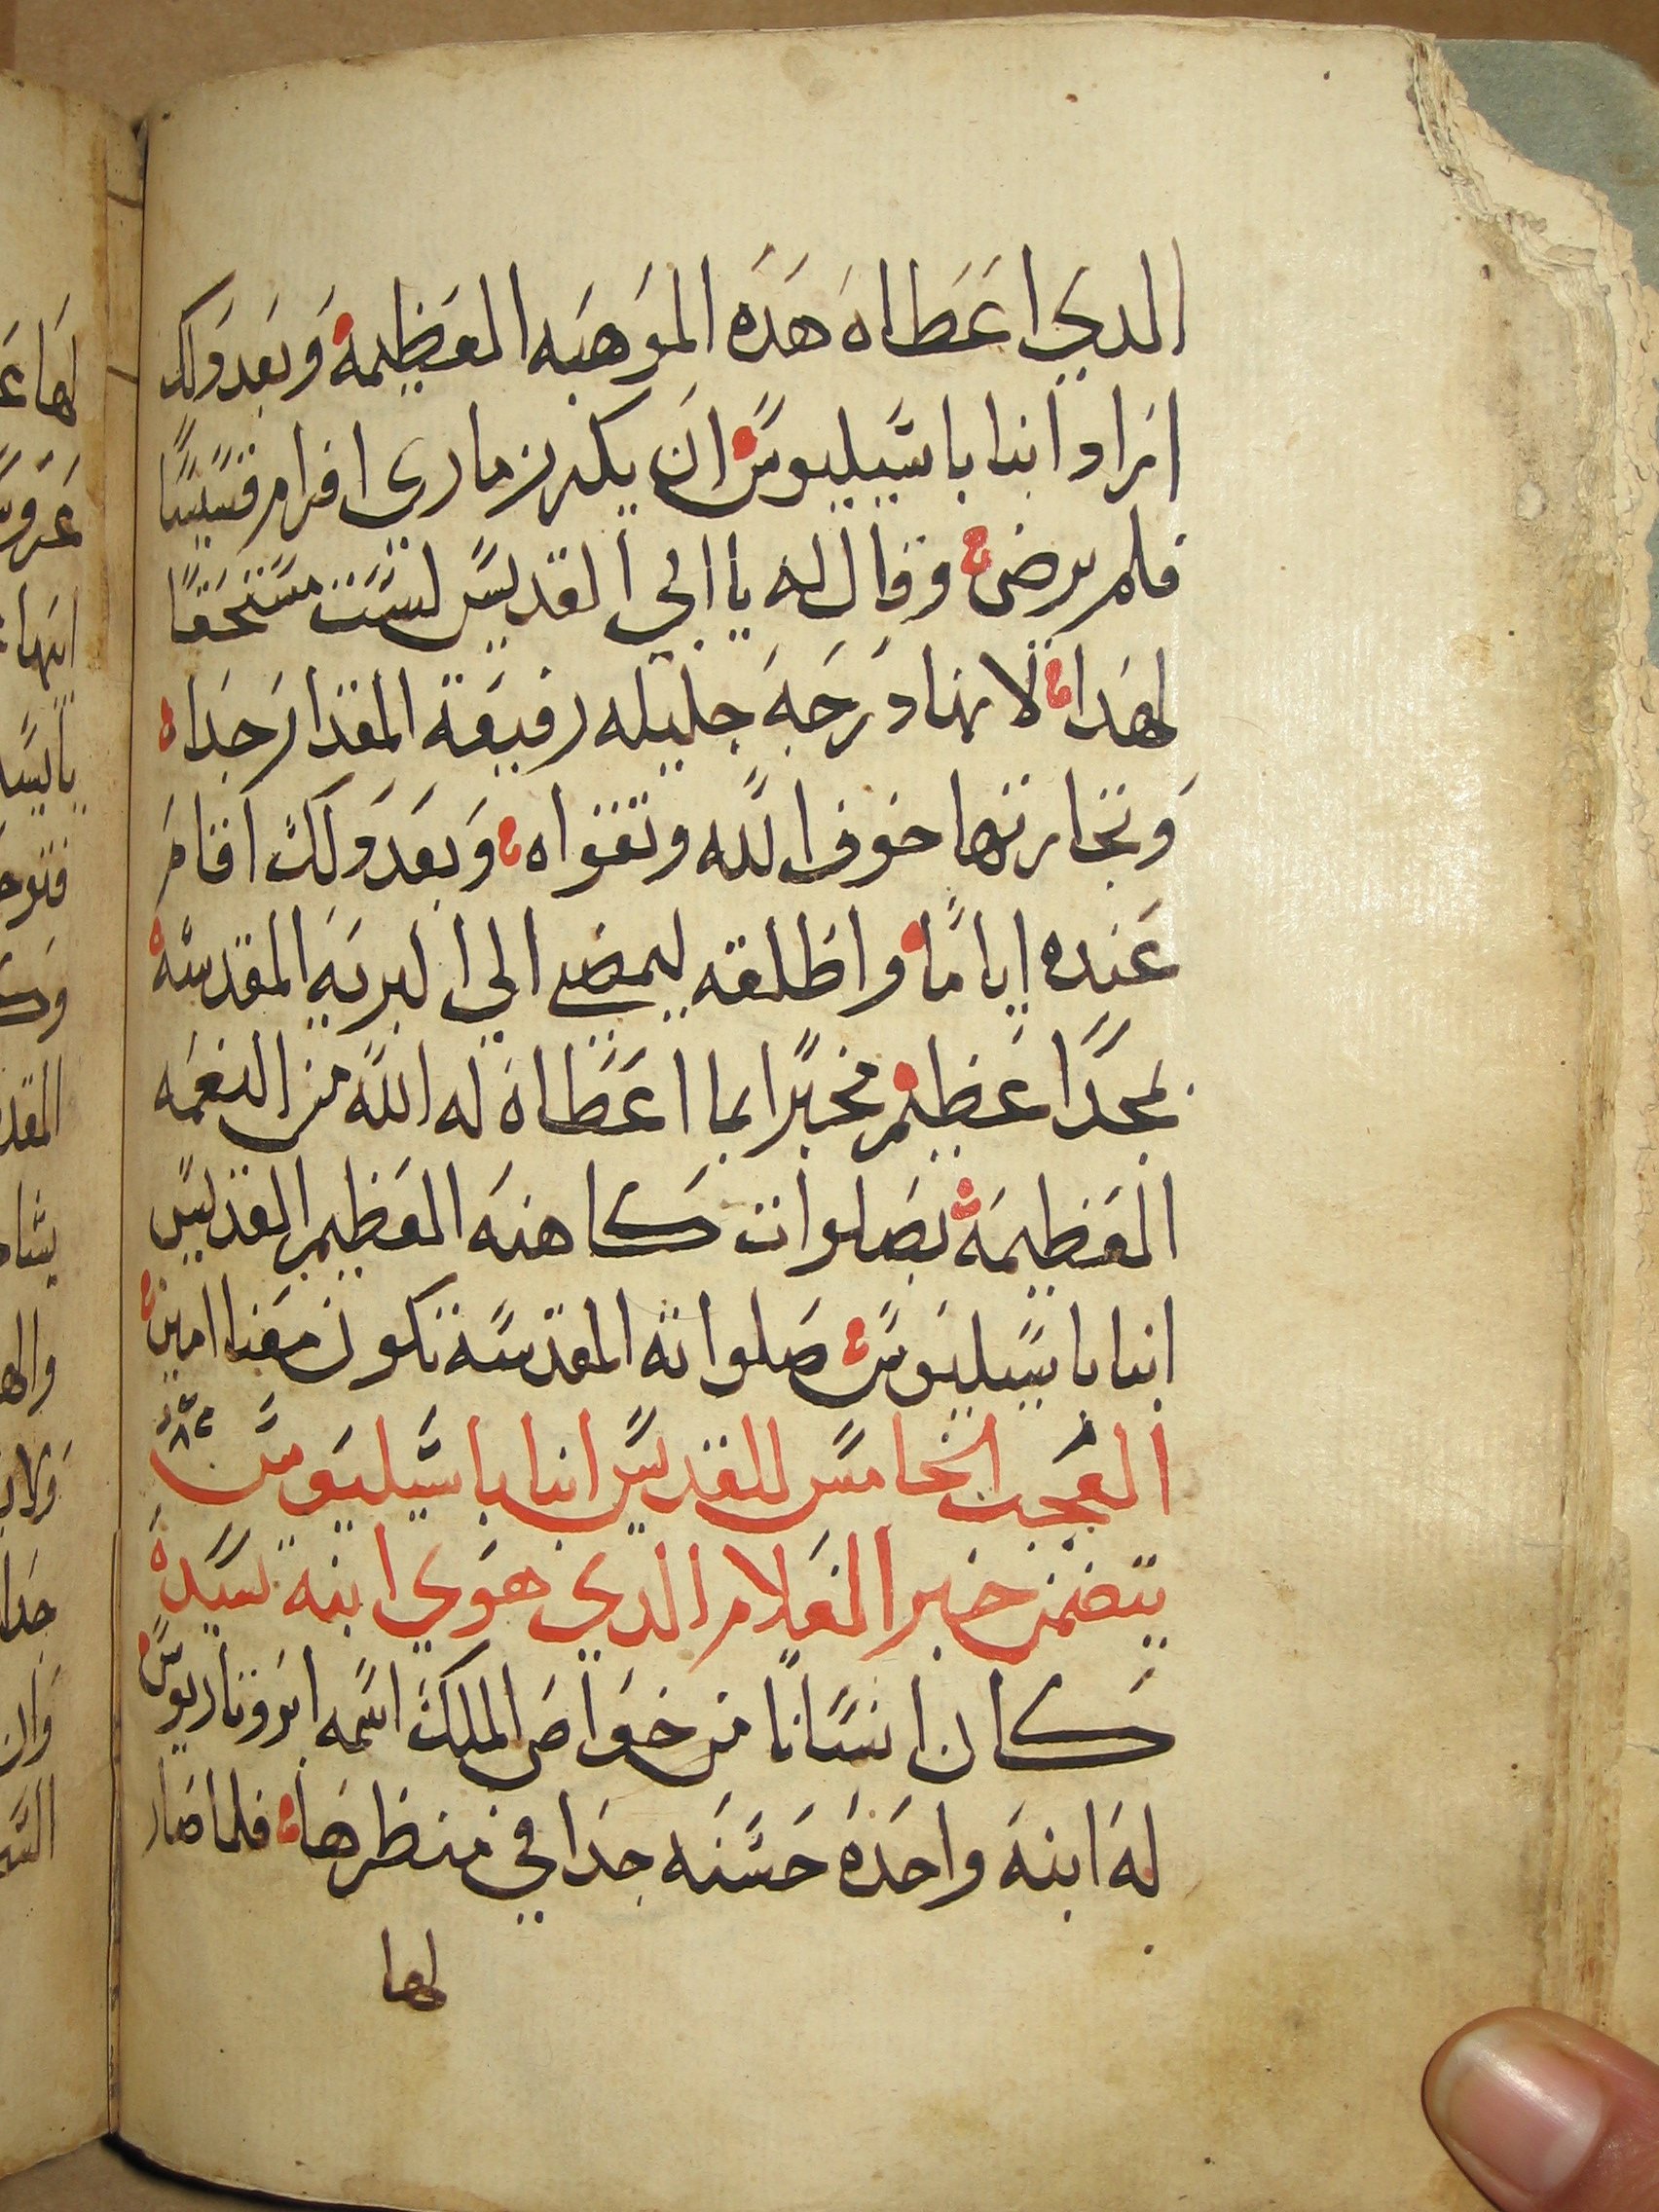 الدي اعطاه هده الموهبه العظيمة وبعد دلك
اراد انبا باسيليوس ان يكرز ماري افرام قسيسا
فلم يرضي وقال له يا ابي القديس لست مستحقا
لهدا لانها درجه جليله رفيعة المقدار جدا
وتجارتها خوف الله وتقواه وبعد دلك اقام
عنده اياما واطلقه ليمضي الي البريه المقدسة
بمجدا عظيم مخبرا بما اعطاه له الله من النعمه
العظيمة بصلوات كاهنه العظيم القديس
انبا باسيليوس صلواته المقدسة تكون معنا امين
العجب الخامس للقديس انبا باسيليوس
يتضمن خبر الغلام الدي هوي ابنة سيدة
كان انسانا من خواص الملك اسمه ابروتاريوس
له ابنة واحدة حسنه جدا في منظرها فلما صار
لها